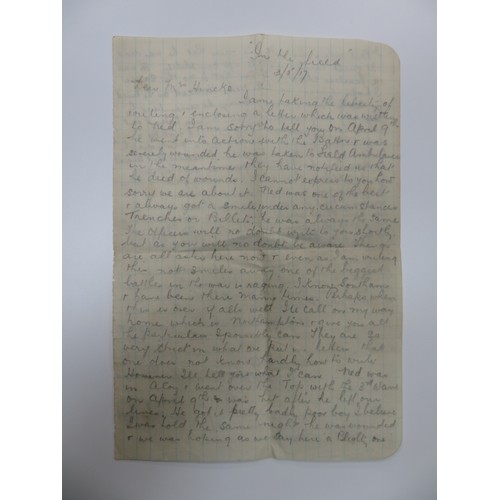 In the field
3/5/17
Dear Mr
I am taking the liberty of
writing & enclosing a letter which was
to Ned I am sorry to tell you on April 9th
he went into action with the Battn & was
severely wounded he was taken to Field Ambulance
in the meantime they have reported that
he died of wounds. I cannot express to you how
sorry we are about it. Ned was one of the best
& always got a smile under any circumstances
Trenches or Billets, he was always the same
The Officers will no doubt write to you shortly
but as you will no doubt be aware things
are all astir here now & even as I am writing
this not 5 miles away one of the biggest
battles in the war is raging. I know
& have been there many times. Perhaps when
this is over if alls well I'll call on my way
home which is Northampton & give you all
the particulars I possibly can. They are so
very strict on what is put in letters that
one does not know hardly how to write
However I'll tell you what I can Ned was
in A Coy & went over the Top with the 3rd Wave
on April 9th & was hit after he left our
lines. He got it pretty badly poor boy I believe
I was told the same night he was wounded
& we was hoping as we say here a Blighty one